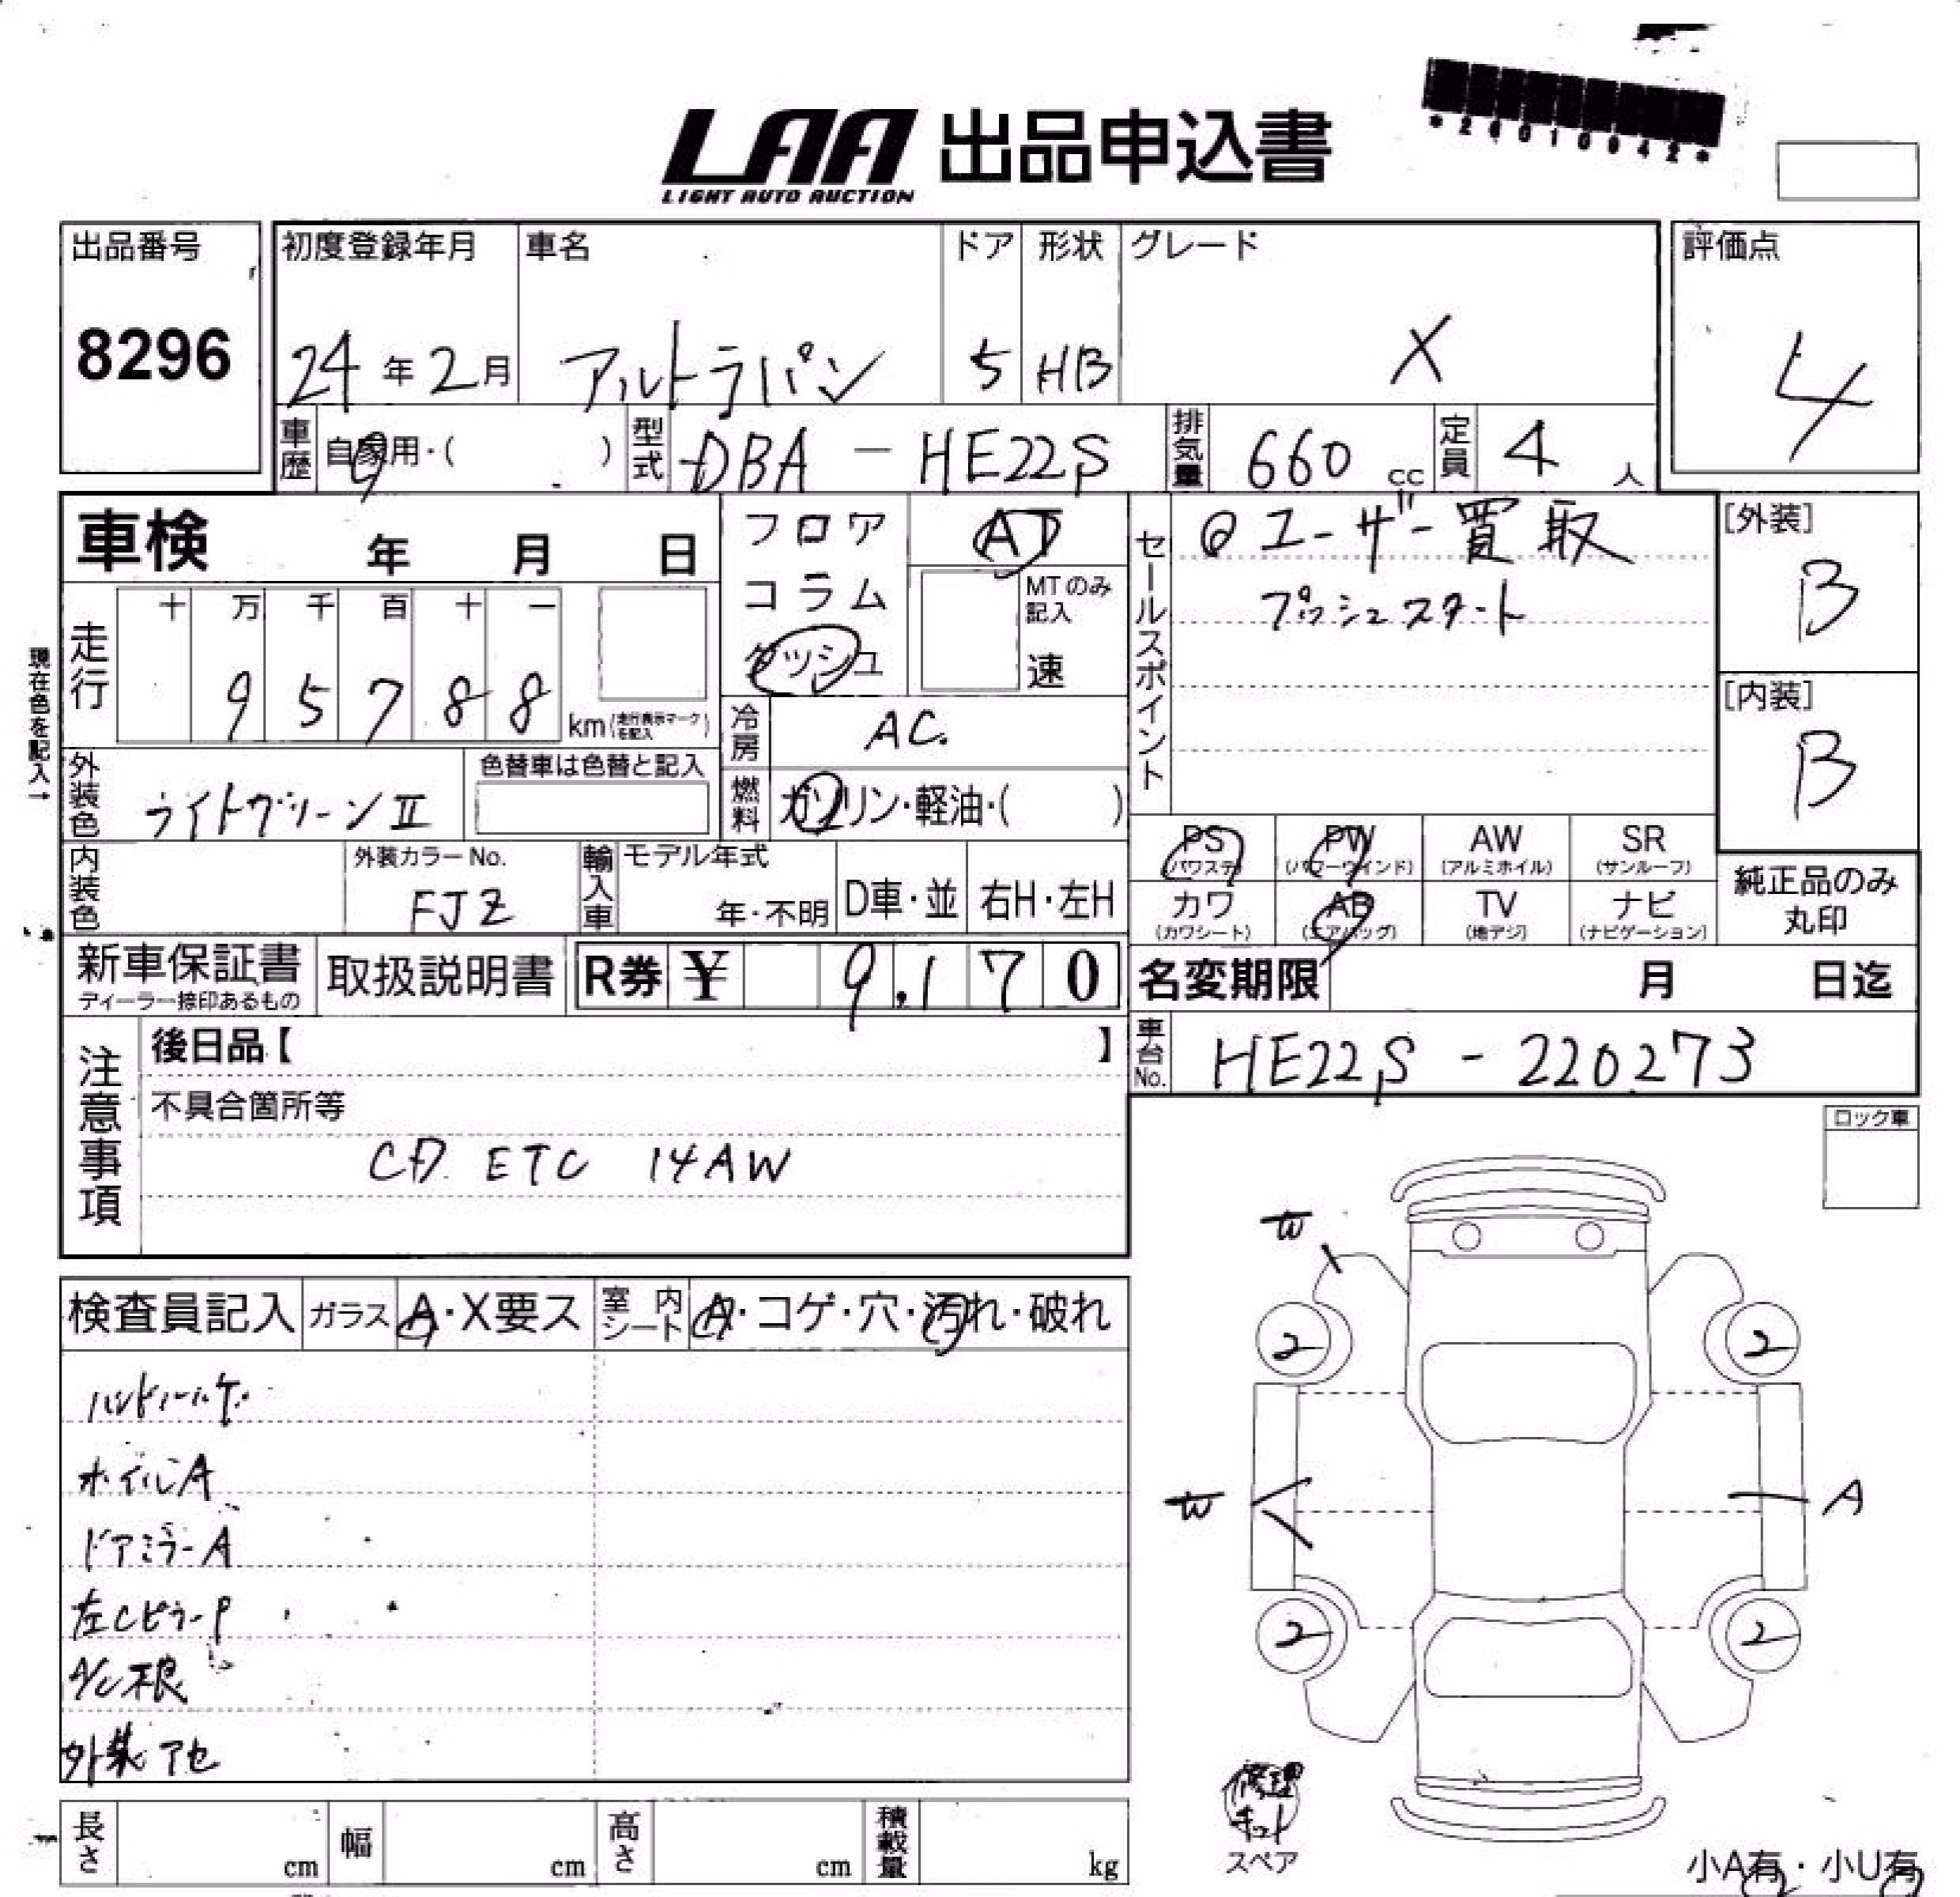 *26010942*
LAA 出品申込書
LIGHT AUTO AUCTION
出品番号 初度登録年月 車名 ドア 形状 グレード 評価点
8296 24年2月 アルトラパン 5 HB X 4
車歴 自家用・( ) 型式 DBA - HE22S 排気量 660 cc 定員 4 人
車検 年 月 日 フロア AT セールスポイント ◎ユーザー買取 [外装]
コラム MTのみ記入 プッシュスタート B
現在色を記入→ 走行 十 万 千 百 十 一
95788 km(走行表示マークを記入) ダッシュ 速 [内装]
冷房 AC. B
外装色 ライトグリーンⅡ 色替車は色替と記入 燃料 ガソリン・軽油・( )
PS PW AW SR
(パワステ) (パワーウインド) (アルミホイル) (サンルーフ)
内装色 外装カラーNo. 輸入車 モデル年式 純正品のみ
FJZ 年・不明 D車・並 右H・左H カワ AB TV ナビ 丸印
(カワシート) (エアバッグ) (地デジ) (ナビゲーション)
新車保証書 取扱説明書 R券 ¥ 9,170 名変期限 月 日迄
ディーラー捺印あるもの
注意事項 後日品【 】 車台No. HE22S - 220273
不具合箇所等 ロック車
CD ETC 14AW
W
検査員記入 ガラス A・X要ス 室内シート A・コゲ・穴・汚れ・破れ
2 2
ハンドルハゲ
ホイルA
W A
ドアミラーA
左CピラーP
2 2
A/C不良
外装アセ
修理キット
スペア
長さ cm 幅 cm 高さ cm 積載量 kg
小A有・小U有